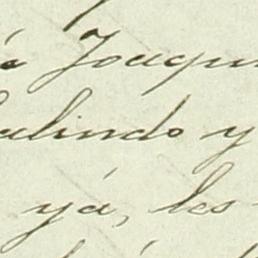 á Joaqui
alindo y
yá, los